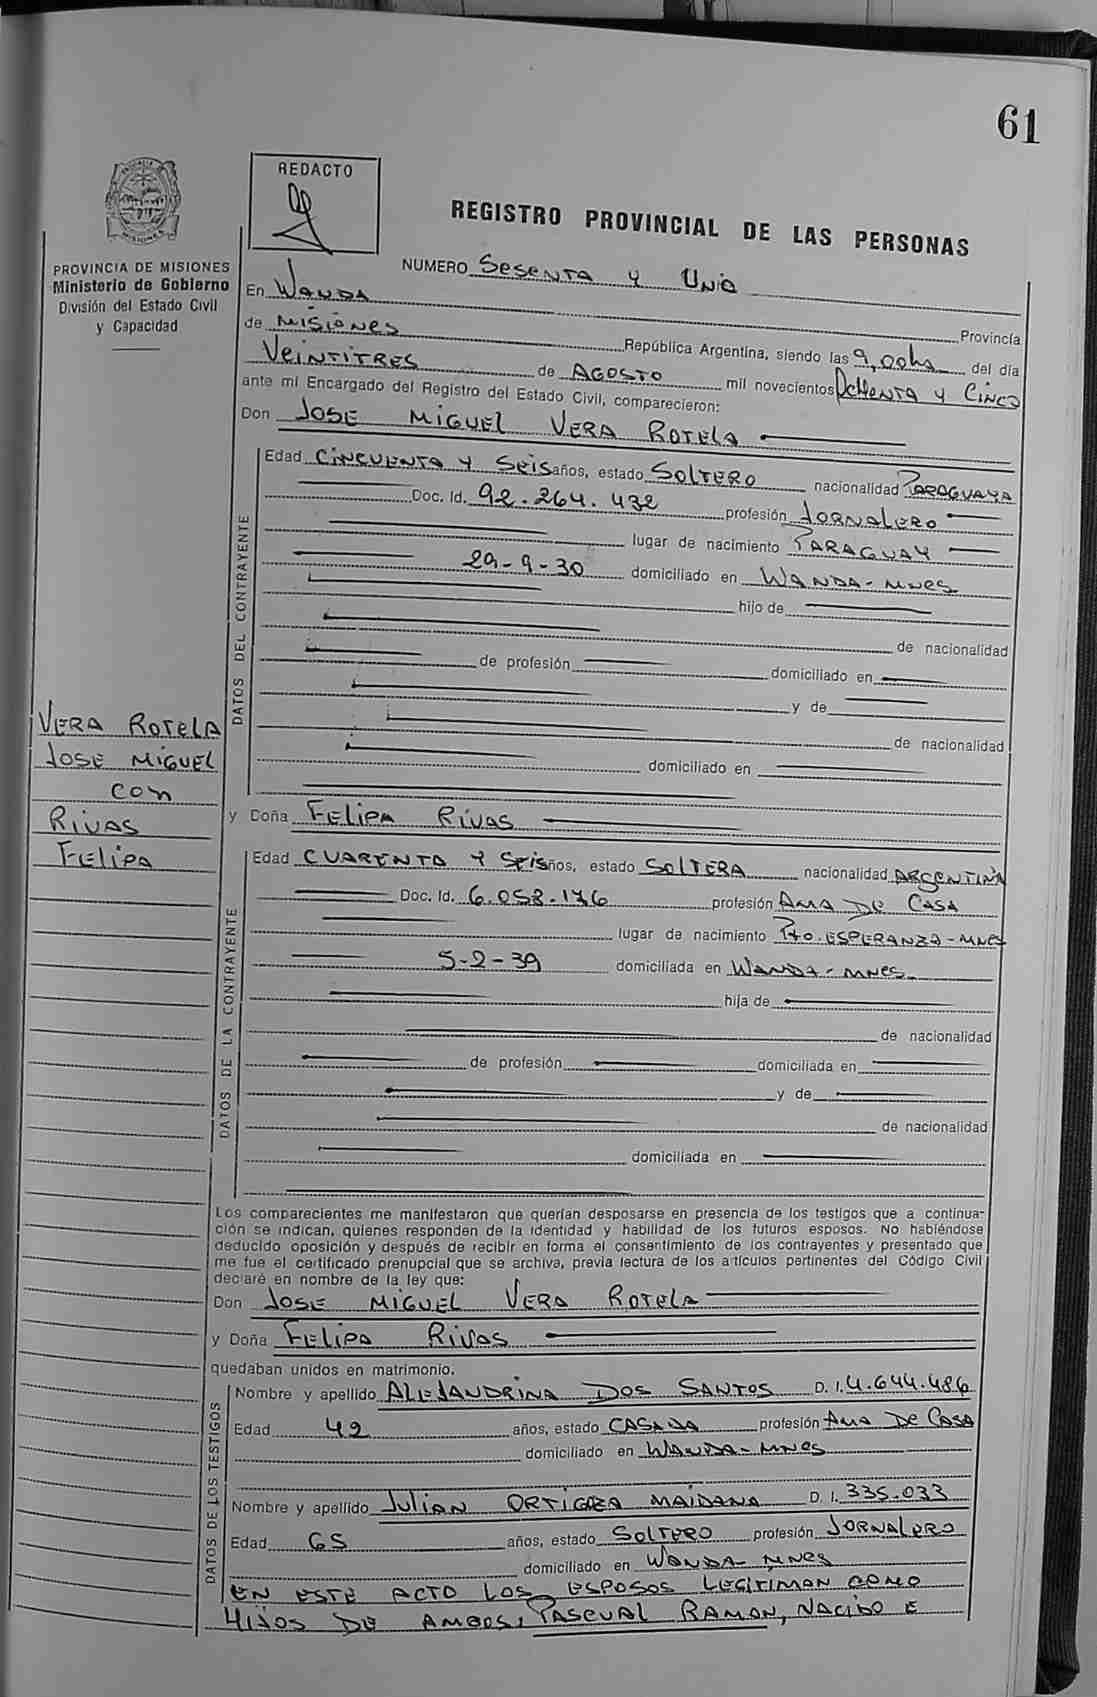 61
REDACTO
REGISTRO PROVINCIAL DE LAS PERSONAS
PROVINCIA DE MISIONES
Ministerio de Gobierno
División del Estado Civil
y Capacidad
NUMERO Sesenta y Uno
En Wanda Provincia
de Misiones República Argentina, siendo las 9,00hs del día
Veintitres de Agosto mil novecientos Ochenta y Cinco
ante mi Encargado del Registro del Estado Civil, comparecieron:
Don Jose Miguel Vera Rotela
DATOS DEL CONTRAYENTE
Edad Cincuenta y Seis años, estado Soltero nacionalidad Paraguaya
Doc. Id. 92.264.432 profesión Jornalero
lugar de nacimiento Paraguay
29-9-30 domiciliado en Wanda-Mnes
hijo de
de nacionalidad
de profesión domiciliado en
y de
de nacionalidad
domiciliado en
Vera Rotela
Jose Miguel
con
Rivas
Felipa
y Doña Felipa Rivas
DATOS DE LA CONTRAYENTE
Edad Cuarenta y Seis años, estado Soltera nacionalidad Argentina
Doc. Id. 6.058.176 profesión Ama De Casa
lugar de nacimiento Pto. Esperanza-Mnes
5-2-39 domiciliada en Wanda-Mnes
hija de
de nacionalidad
de profesión domiciliada en
y de
de nacionalidad
domiciliada en
Los comparecientes me manifestaron que querían desposarse en presencia de los testigos que a continua-
ción se indican, quienes responden de la identidad y habilidad de los futuros esposos. No habiéndose
deducido oposición y después de recibir en forma el consentimiento de los contrayentes y presentado que
me fue el certificado prenupcial que se archiva, previa lectura de los artículos pertinentes del Código Civil
declaré en nombre de la ley que:
Don Jose Miguel Vera Rotela
y Doña Felipa Rivas
quedaban unidos en matrimonio.
DATOS DE LOS TESTIGOS
Nombre y apellido Alejandrina Dos Santos D. I. 4.644.486
Edad 42 años, estado Casada profesión Ama De Casa
domiciliado en Wanda-Mnes
Nombre y apellido Julian Ortigoza Maidana D. I. 335.033
Edad 65 años, estado Soltero profesión Jornalero
domiciliado en Wanda-Mnes
En este acto los esposos legitiman como
hijos de ambos, Pascual Ramon, Nacido e